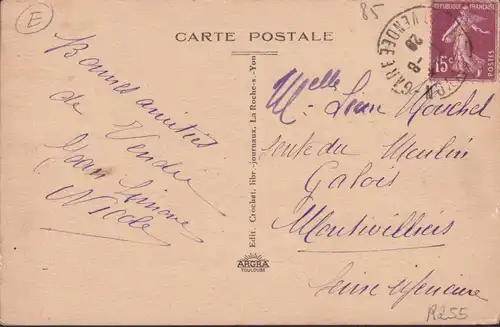 E
85
CARTE POSTALE
REPUBLIQUE FRANÇAISE
15c
POSTES
GARE
VENDÉE
Bonnes amitiés
de Vendée
Jean Simone
Nicole
Melle
Route du Moulin
Galois
Montivilliers
Seine inférieure
Edit. Crochet, libr.-journaux, La Roche-s.-Yon
ARGRA
TOULOUSE
R255